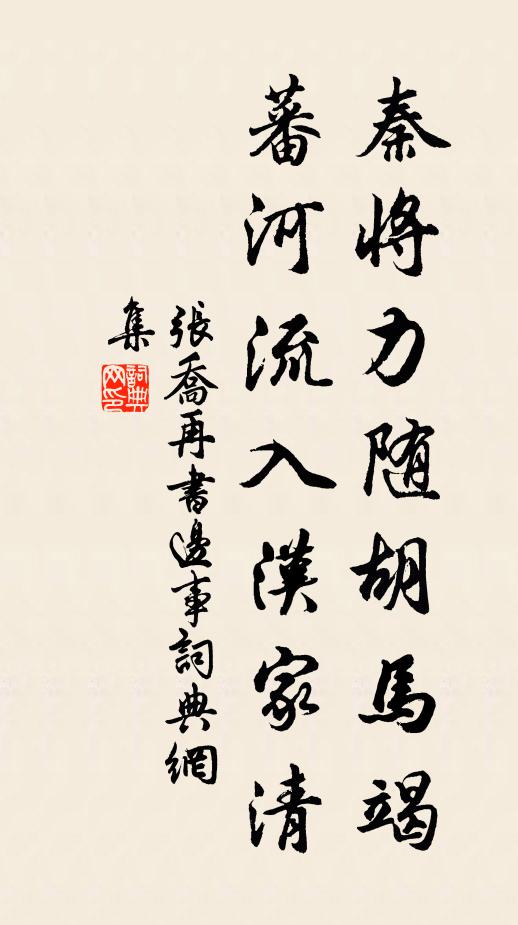 秦將力随胡馬竭
蕃河流入漢家清
張喬再書邊事詞典網
集
詞典
网印